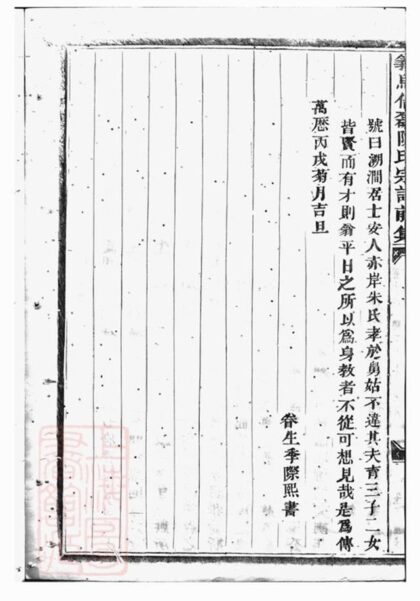 陳氏宗譜前集
號曰湖澗居士安人赤岸朱氏孝於舅姑不違其夫育三子二女
皆賢而有才則翁平日之所以爲身教者不從可想見哉是爲傳
萬歷丙戌菊月吉旦
眷生季際熙書